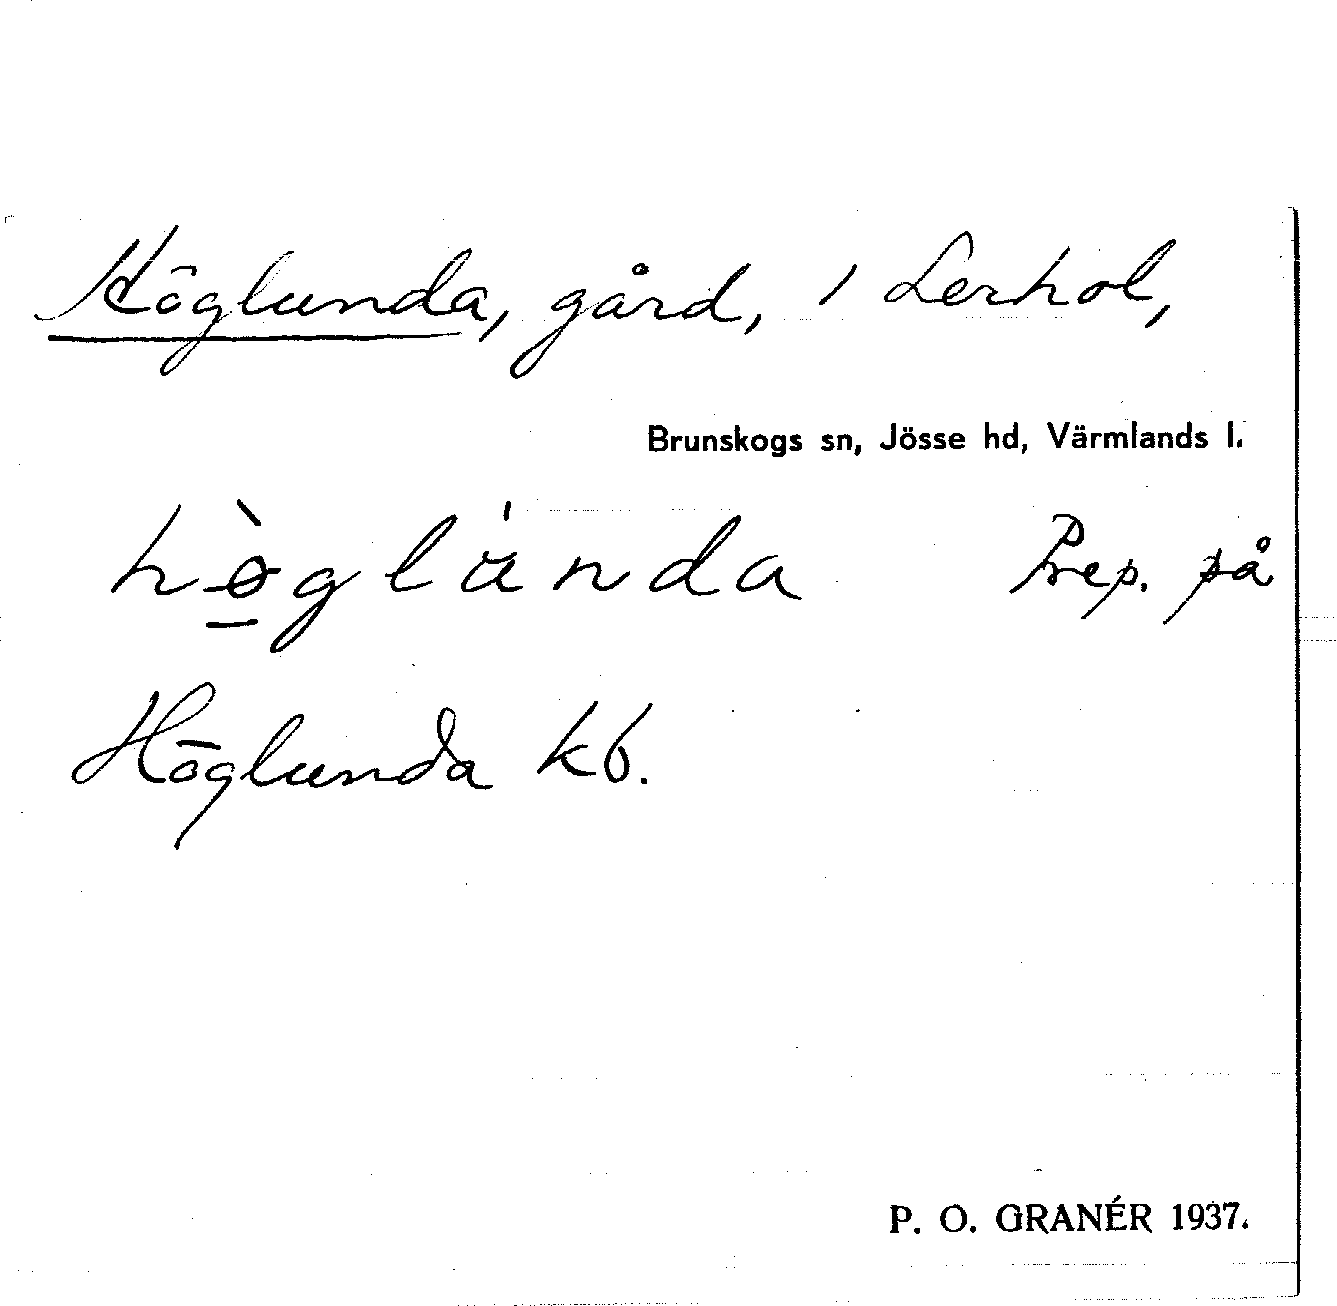 Höglunda, gård, i Lerhol,
Brunskogs sn, Jösse hd, Värmlands l.
hø̀glúnda Prep. på
Höglunda kb.
P. O. GRANÉR 1937.